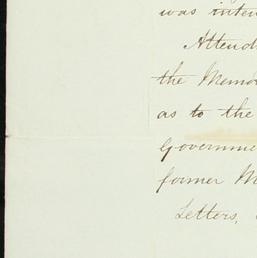 was inten
Attend
the Memo
as to the
Governme
former M
Letters,